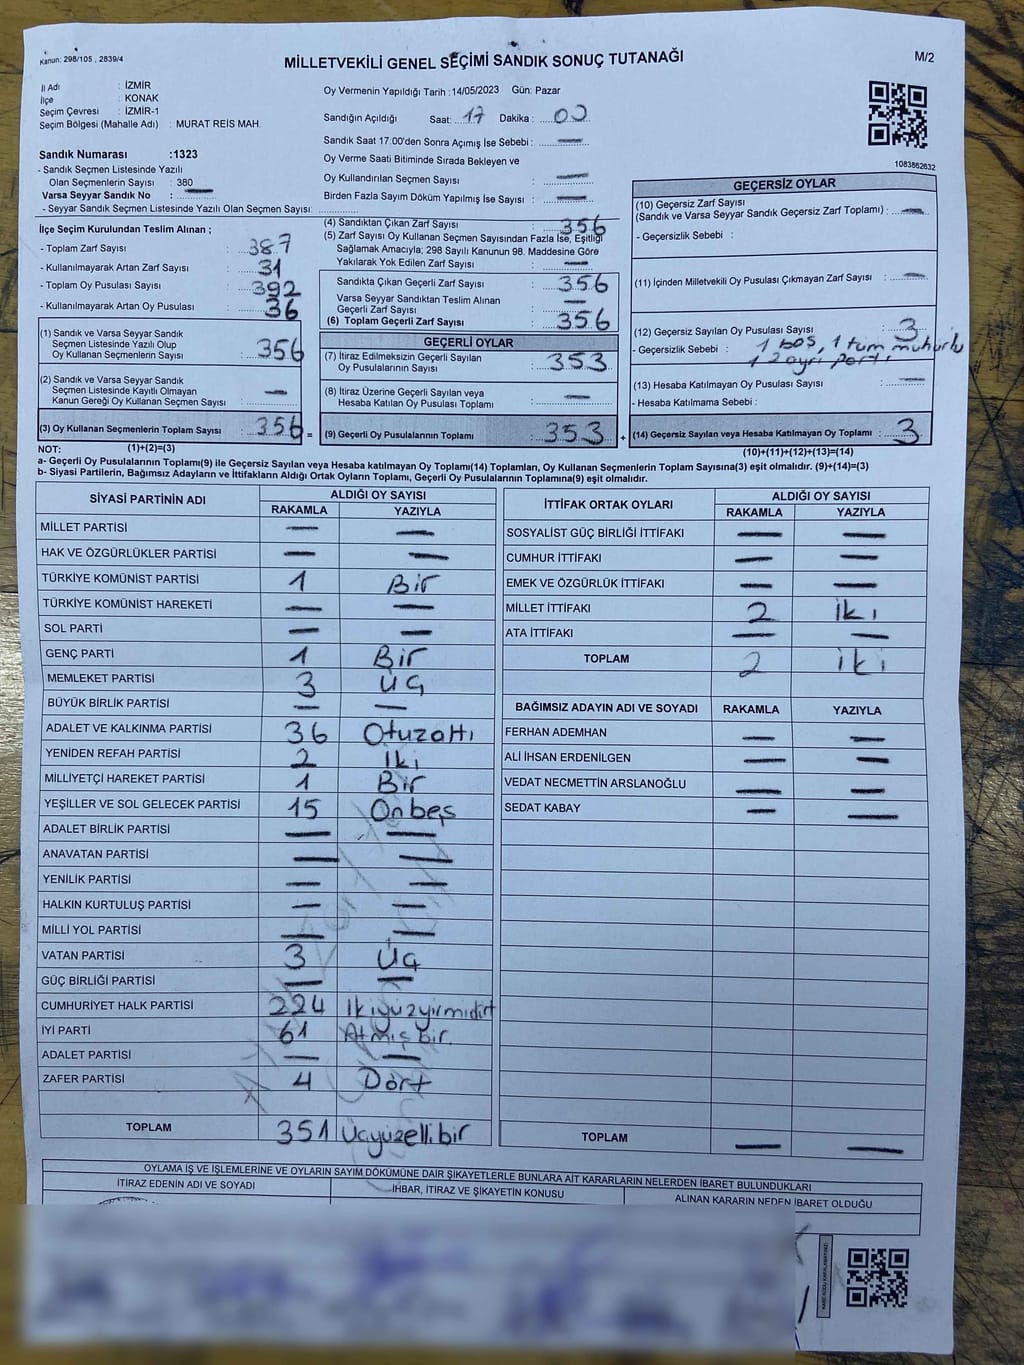 Kanun: 298/105 , 2839/4
MİLLETVEKİLİ GENEL SEÇİMİ SANDIK SONUÇ TUTANAĞI
M/2
İl Adı : İZMİR
İlçe : KONAK
Seçim Çevresi : İZMİR-1
Seçim Bölgesi (Mahalle Adı) : MURAT REİS MAH.
Sandık Numarası :1323
- Sandık Seçmen Listesinde Yazılı
Olan Seçmenlerin Sayısı : 380
Varsa Seyyar Sandık No : —
- Seyyar Sandık Seçmen Listesinde Yazılı Olan Seçmen Sayısı:
Oy Vermenin Yapıldığı Tarih :14/05/2023 Gün: Pazar
Sandığın Açıldığı Saat: 17 Dakika : 00
Sandık Saat 17:00'den Sonra Açımış İse Sebebi : —
Oy Verme Saati Bitiminde Sırada Bekleyen ve
Oy Kullandırılan Seçmen Sayısı : —
Birden Fazla Sayım Döküm Yapılmış İse Sayısı : —
1083862632
İlçe Seçim Kurulundan Teslim Alınan ;
- Toplam Zarf Sayısı : 387
- Kullanılmayarak Artan Zarf Sayısı : 31
- Toplam Oy Pusulası Sayısı : 392
- Kullanılmayarak Artan Oy Pusulası : 36
(1) Sandık ve Varsa Seyyar Sandık
Seçmen Listesinde Yazılı Olup
Oy Kullanan Seçmenlerin Sayısı : 356
(2) Sandık ve Varsa Seyyar Sandık
Seçmen Listesinde Kayıtlı Olmayan
Kanun Gereği Oy Kullanan Seçmen Sayısı : —
(3) Oy Kullanan Seçmenlerin Toplam Sayısı : 356 =
(4) Sandıktan Çıkan Zarf Sayısı : 356
(5) Zarf Sayısı Oy Kullanan Seçmen Sayısından Fazla İse, Eşitliği
Sağlamak Amacıyla; 298 Sayılı Kanunun 98. Maddesine Göre
Yakılarak Yok Edilen Zarf Sayısı : —
Sandıkta Çıkan Geçerli Zarf Sayısı : 356
Varsa Seyyar Sandıktan Teslim Alınan
Geçerli Zarf Sayısı : —
(6) Toplam Geçerli Zarf Sayısı : 356
GEÇERLİ OYLAR
(7) İtiraz Edilmeksizin Geçerli Sayılan
Oy Pusulalarının Sayısı : 353
(8) İtiraz Üzerine Geçerli Sayılan veya
Hesaba Katılan Oy Pusulası Toplamı : —
(9) Geçerli Oy Pusulalarının Toplamı : 353 +
GEÇERSİZ OYLAR
(10) Geçersiz Zarf Sayısı
(Sandık ve Varsa Seyyar Sandık Geçersiz Zarf Toplamı) : —
- Geçersizlik Sebebi :
(11) İçinden Milletvekili Oy Pusulası Çıkmayan Zarf Sayısı : —
(12) Geçersiz Sayılan Oy Pusulası Sayısı : 3
- Geçersizlik Sebebi : 1 boş, 1 tüm mühürlü
1 2 ayrı parti
(13) Hesaba Katılmayan Oy Pusulası Sayısı : —
- Hesaba Katılmama Sebebi :
(14) Geçersiz Sayılan veya Hesaba Katılmayan Oy Toplamı : 3
NOT: (1)+(2)=(3) (10)+(11)+(12)+(13)=(14)
a- Geçerli Oy Pusulalarının Toplamı(9) ile Geçersiz Sayılan veya Hesaba katılmayan Oy Toplamı(14) Toplamları, Oy Kullanan Seçmenlerin Toplam Sayısına(3) eşit olmalıdır. (9)+(14)=(3)
b- Siyasi Partilerin, Bağımsız Adayların ve İttifakların Aldığı Ortak Oyların Toplamı, Geçerli Oy Pusulalarının Toplamına(9) eşit olmalıdır.
SİYASİ PARTİNİN ADI ALDIĞI OY SAYISI
RAKAMLA YAZIYLA
MİLLET PARTİSİ — —
HAK VE ÖZGÜRLÜKLER PARTİSİ — —
TÜRKİYE KOMÜNİST PARTİSİ 1 Bir
TÜRKİYE KOMÜNİST HAREKETİ — —
SOL PARTİ — —
GENÇ PARTİ 1 Bir
MEMLEKET PARTİSİ 3 Üç
BÜYÜK BİRLİK PARTİSİ — —
ADALET VE KALKINMA PARTİSİ 36 Otuzaltı
YENİDEN REFAH PARTİSİ 2 İki
MİLLİYETÇİ HAREKET PARTİSİ 1 Bir
YEŞİLLER VE SOL GELECEK PARTİSİ 15 Onbeş
ADALET BİRLİK PARTİSİ — —
ANAVATAN PARTİSİ — —
YENİLİK PARTİSİ — —
HALKIN KURTULUŞ PARTİSİ — —
MİLLİ YOL PARTİSİ — —
VATAN PARTİSİ 3 Üç
GÜÇ BİRLİĞİ PARTİSİ — —
CUMHURİYET HALK PARTİSİ 224 İkiyüzyirmidört
İYİ PARTİ 61 Atmışbir
ADALET PARTİSİ — —
ZAFER PARTİSİ 4 Dört
TOPLAM 351 Üçyüzellibir
İTTİFAK ORTAK OYLARI ALDIĞI OY SAYISI
RAKAMLA YAZIYLA
SOSYALİST GÜÇ BİRLİĞİ İTTİFAKI — —
CUMHUR İTTİFAKI — —
EMEK VE ÖZGÜRLÜK İTTİFAKI — —
MİLLET İTTİFAKI 2 İki
ATA İTTİFAKI — —
TOPLAM 2 iki
BAĞIMSIZ ADAYIN ADI VE SOYADI RAKAMLA YAZIYLA
FERHAN ADEMHAN — —
ALİ İHSAN ERDENİLGEN — —
VEDAT NECMETTİN ARSLANOĞLU — —
SEDAT KABAY — —
TOPLAM — —
OYLAMA İŞ VE İŞLEMLERİNE VE OYLARIN SAYIM DÖKÜMÜNE DAİR ŞİKAYETLERLE BUNLARA AİT KARARLARIN NELERDEN İBARET BULUNDUKLARI
İTİRAZ EDENİN ADI VE SOYADI
İHBAR, İTİRAZ VE ŞİKAYETİN KONUSU
ALINAN KARARIN NEDEN İBARET OLDUĞU